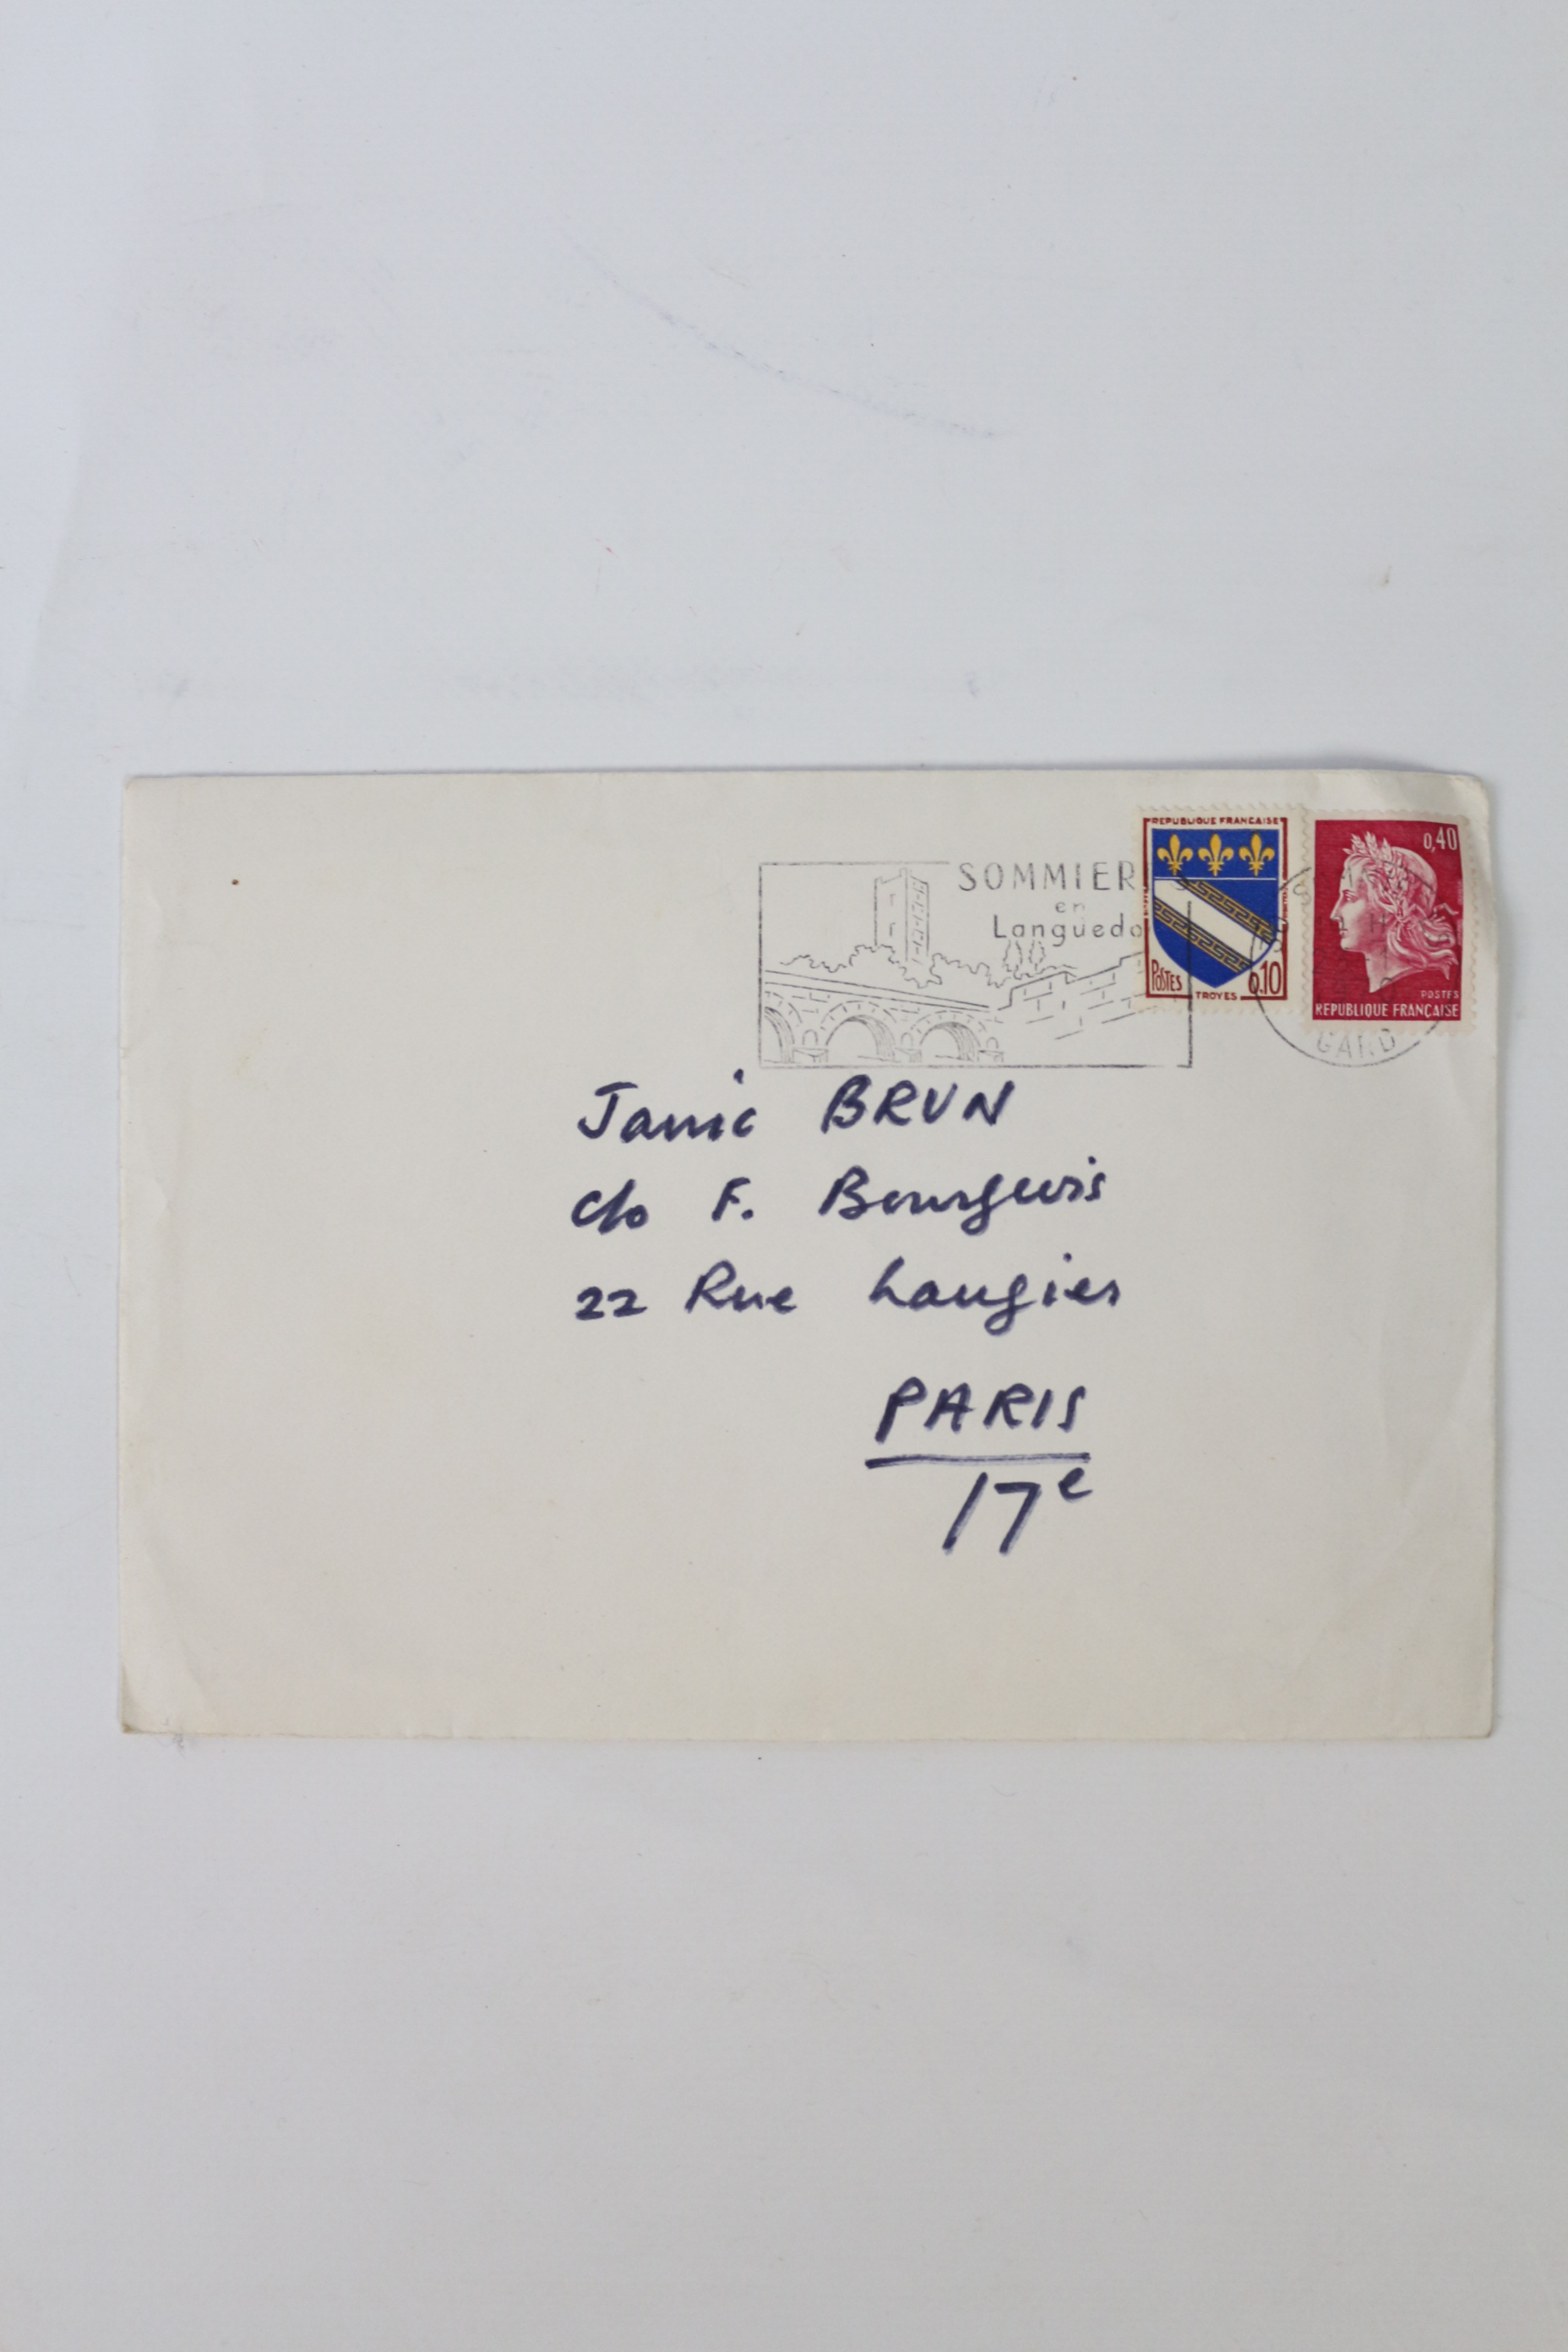 SOMMIER
en
Languedo
REPUBLIQUE FRANCAISE
POSTES 0.10
TROYES
0,40
POSTES
REPUBLIQUE FRANÇAISE
GARD
Janic BRUN
c/o F. Bourgeois
22 Rue Laugier
PARIS
17e